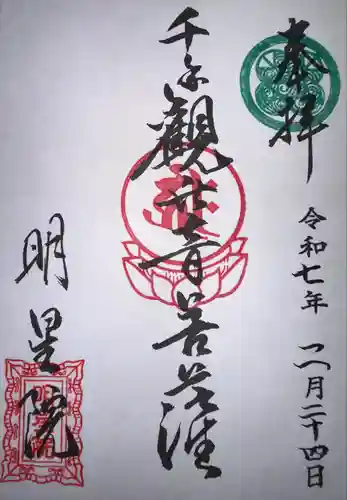 奉拝
令和七年 二月二十四日
千手觀世音菩薩
明星院